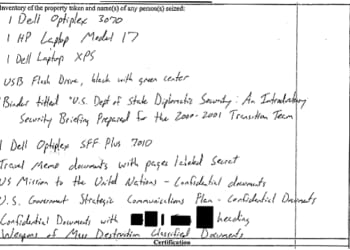 Inventory of the property taken and name(s) of any person(s) seized:
1 Dell Optiplex 3070
1 HP Laptop Model 17
1 Dell Laptop XPS
USB Flash Drive, black with green center
Binder titled "U.S. Dept of State Diplomatic Security: An Introductory
Security Briefing Prepared for the 2000-2001 Transition Team
1 Dell Optiplex SFF Plus 7010
Travel Memo documents with pages labeled Secret
US Mission to the United Nations - Confidential documents
U.S. Government Strategic Communications Plan - Confidential Documents
Confidential Documents with heading
Weapons of Mass Destruction Classified Documents
Certification